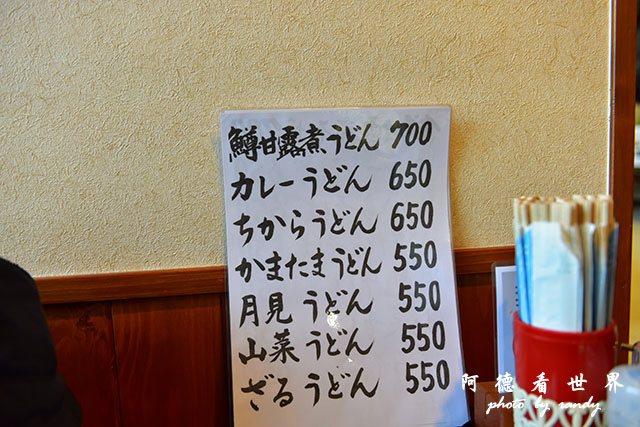 鱒甘露煮うどん 700
カレーうどん 650
ちからうどん 650
かまたまうどん 550
月見うどん 550
山菜うどん 550
ざるうどん 550
阿德看世界
photo by sandy